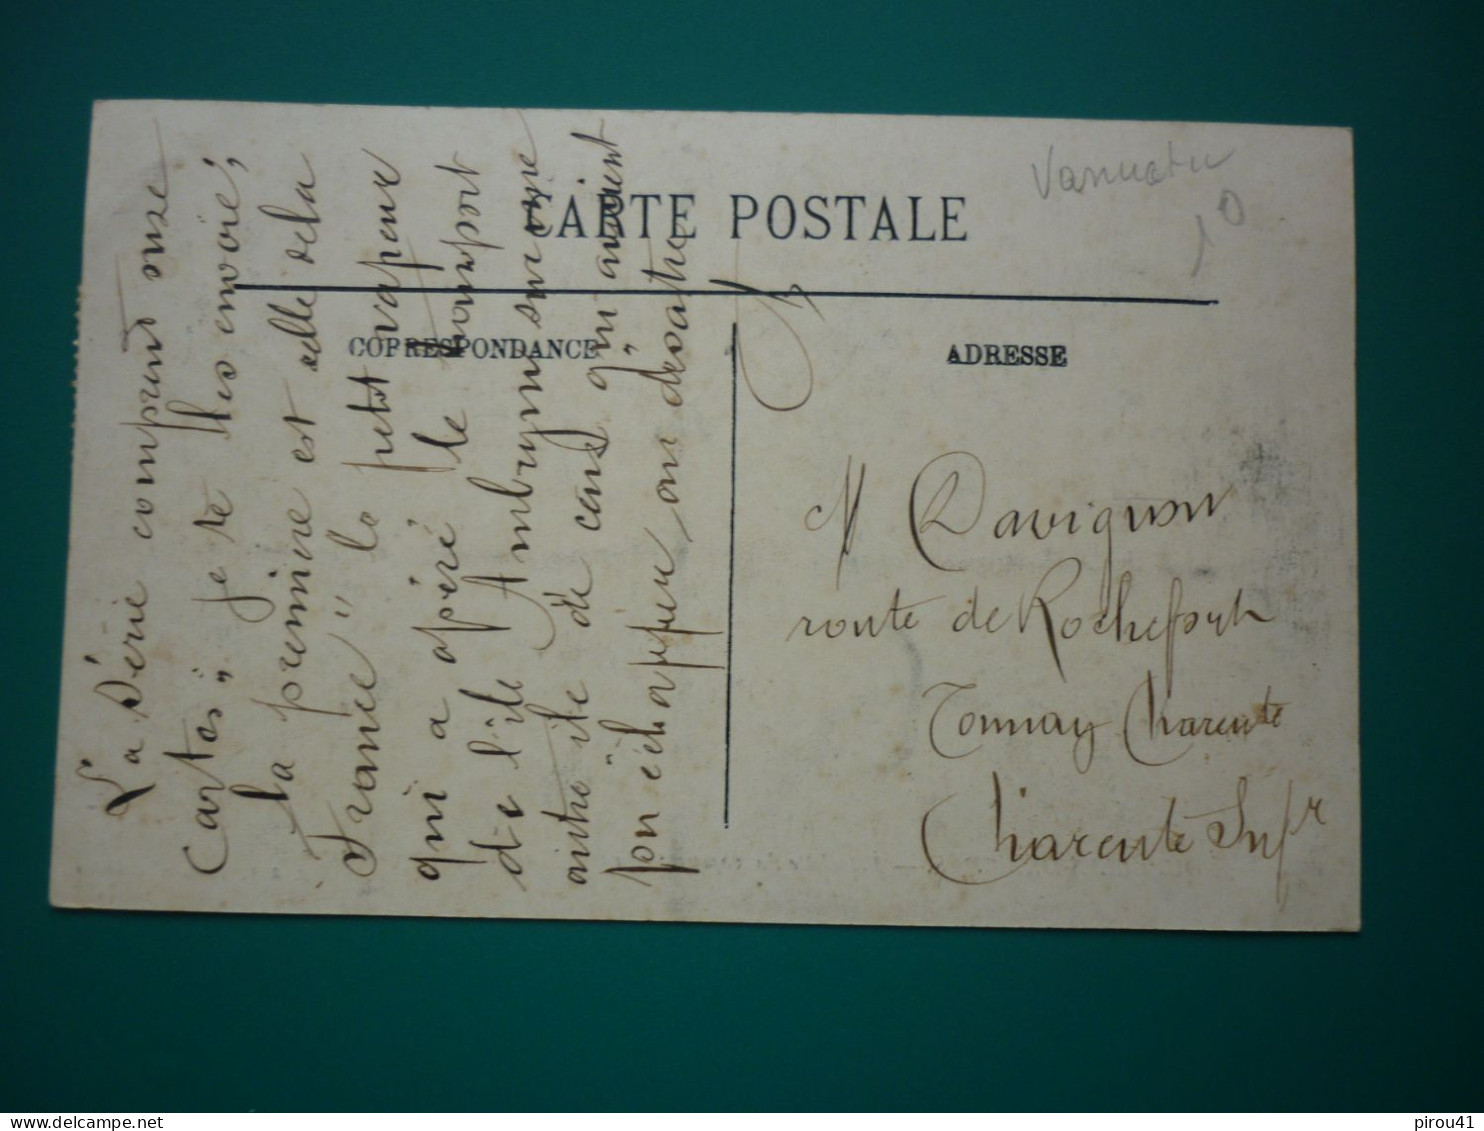 CARTE POSTALE
Vanuatu
10
CORRESPONDANCE
ADRESSE
La série comprend onze
cartes, je te les envoie,
la première est celle de la
"France" le petit vapeur
qui a opéré le transport
de l'île Ambrym sur une
autre île de ceux qui avaient
pu échapper au désastre
M Davignon
route de Rochefort
Tonnay Charente
Charente Infre
delcampe.net
pirou41